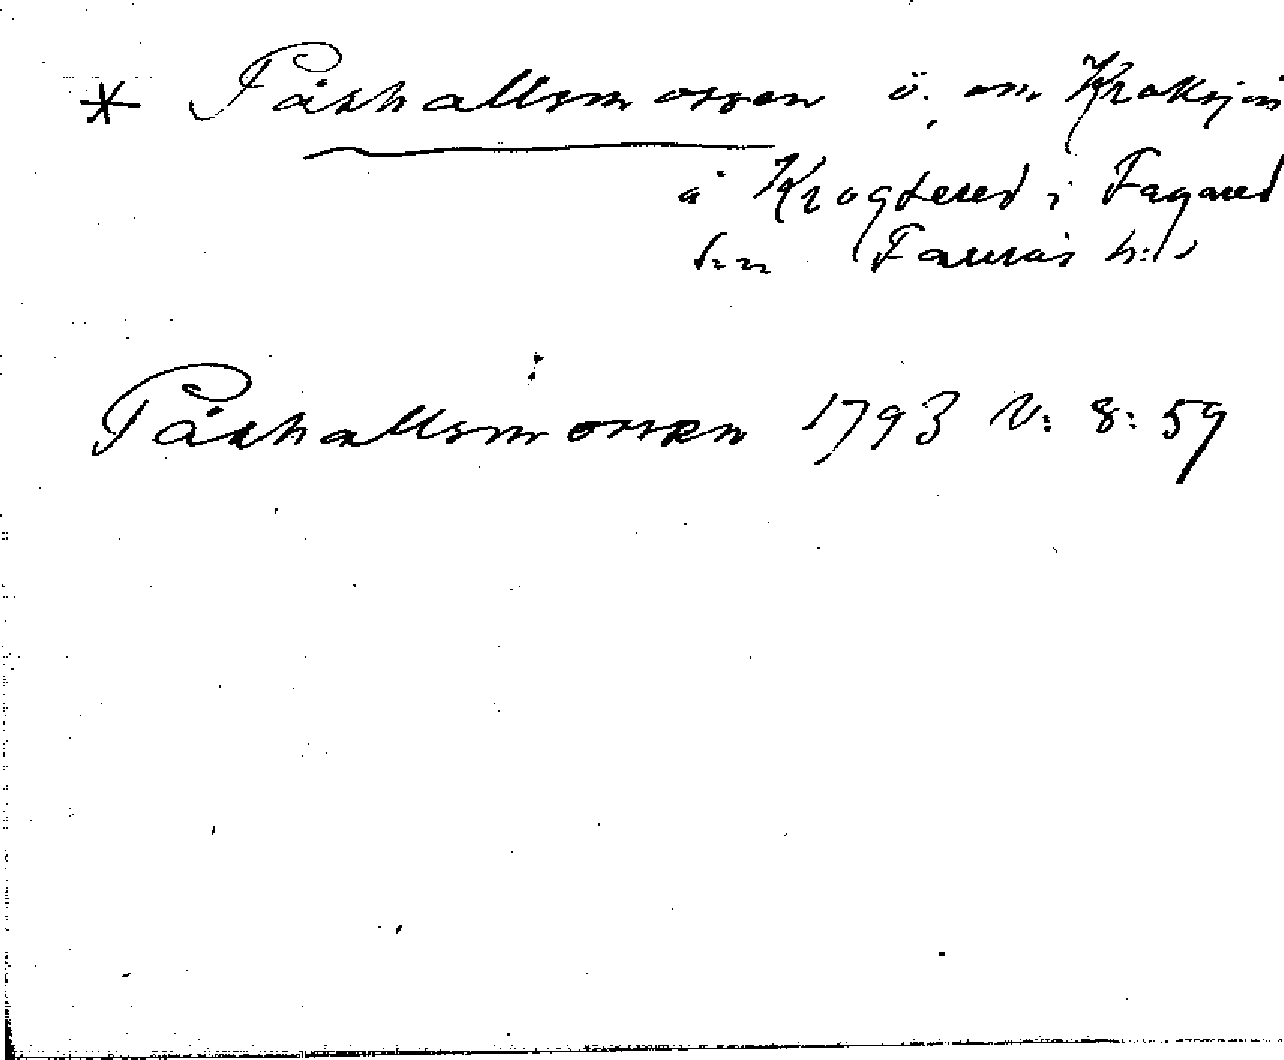 * Påskhallsmossen ö. om Kroksjön
å Krogsered i Fagared
sn Faurås h:d
Påskhallsmossen 1793 V: 8: 59